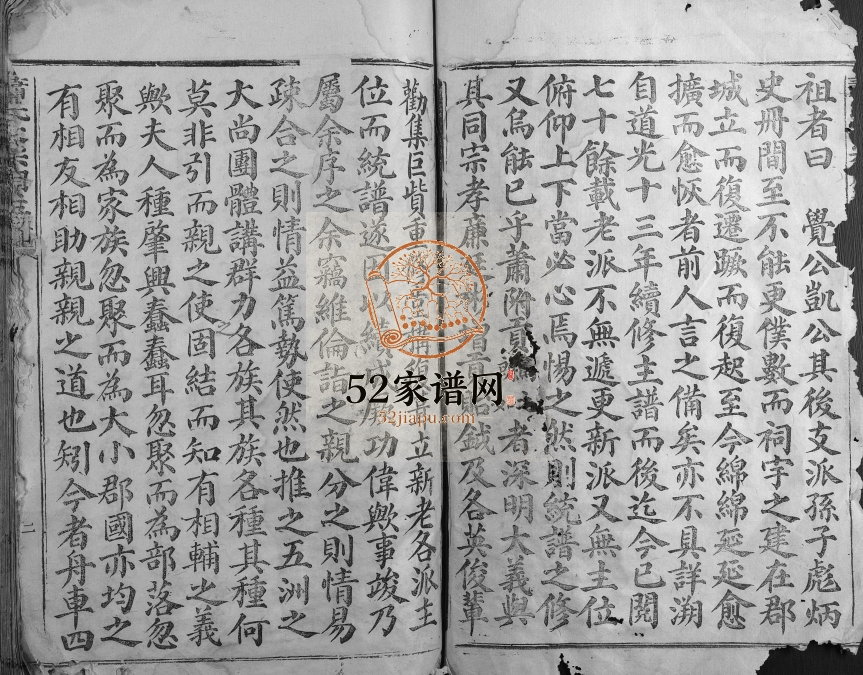 祖者曰 覺公凱公其後支派孫子彪炳
史冊間至不能更僕數而祠宇之建在郡
城立而復遷蹶而復起至今綿綿延延愈
擴而愈恢者前人言之備矣亦不具詳溯
自道光十三年續修主譜而後迄今已閱
七十餘載老派不無遞更新派又無主位
俯仰上下當必心焉惕之然則統譜之修
又烏能已乎蕭附貢 者深明大義與
其同宗孝廉 鉞及各英俊輩
勸集巨貲重 堂 立新老各派主
位而統譜遂因以續 功偉歟事竣乃
屬余序之余竊維倫誼之親分之則情易
疎合之則情益篤勢使然也推之五洲之
大尚團體講群力各族其族各種其種何
莫非引而親之使固結而知有相輔之義
歟夫人種肇興蠢蠢耳忽聚而為部落忽
聚而為家族忽聚而為大小郡國亦均之
有相友相助親親之道也矧今者舟車四
二
52家谱网
52jiapu.com